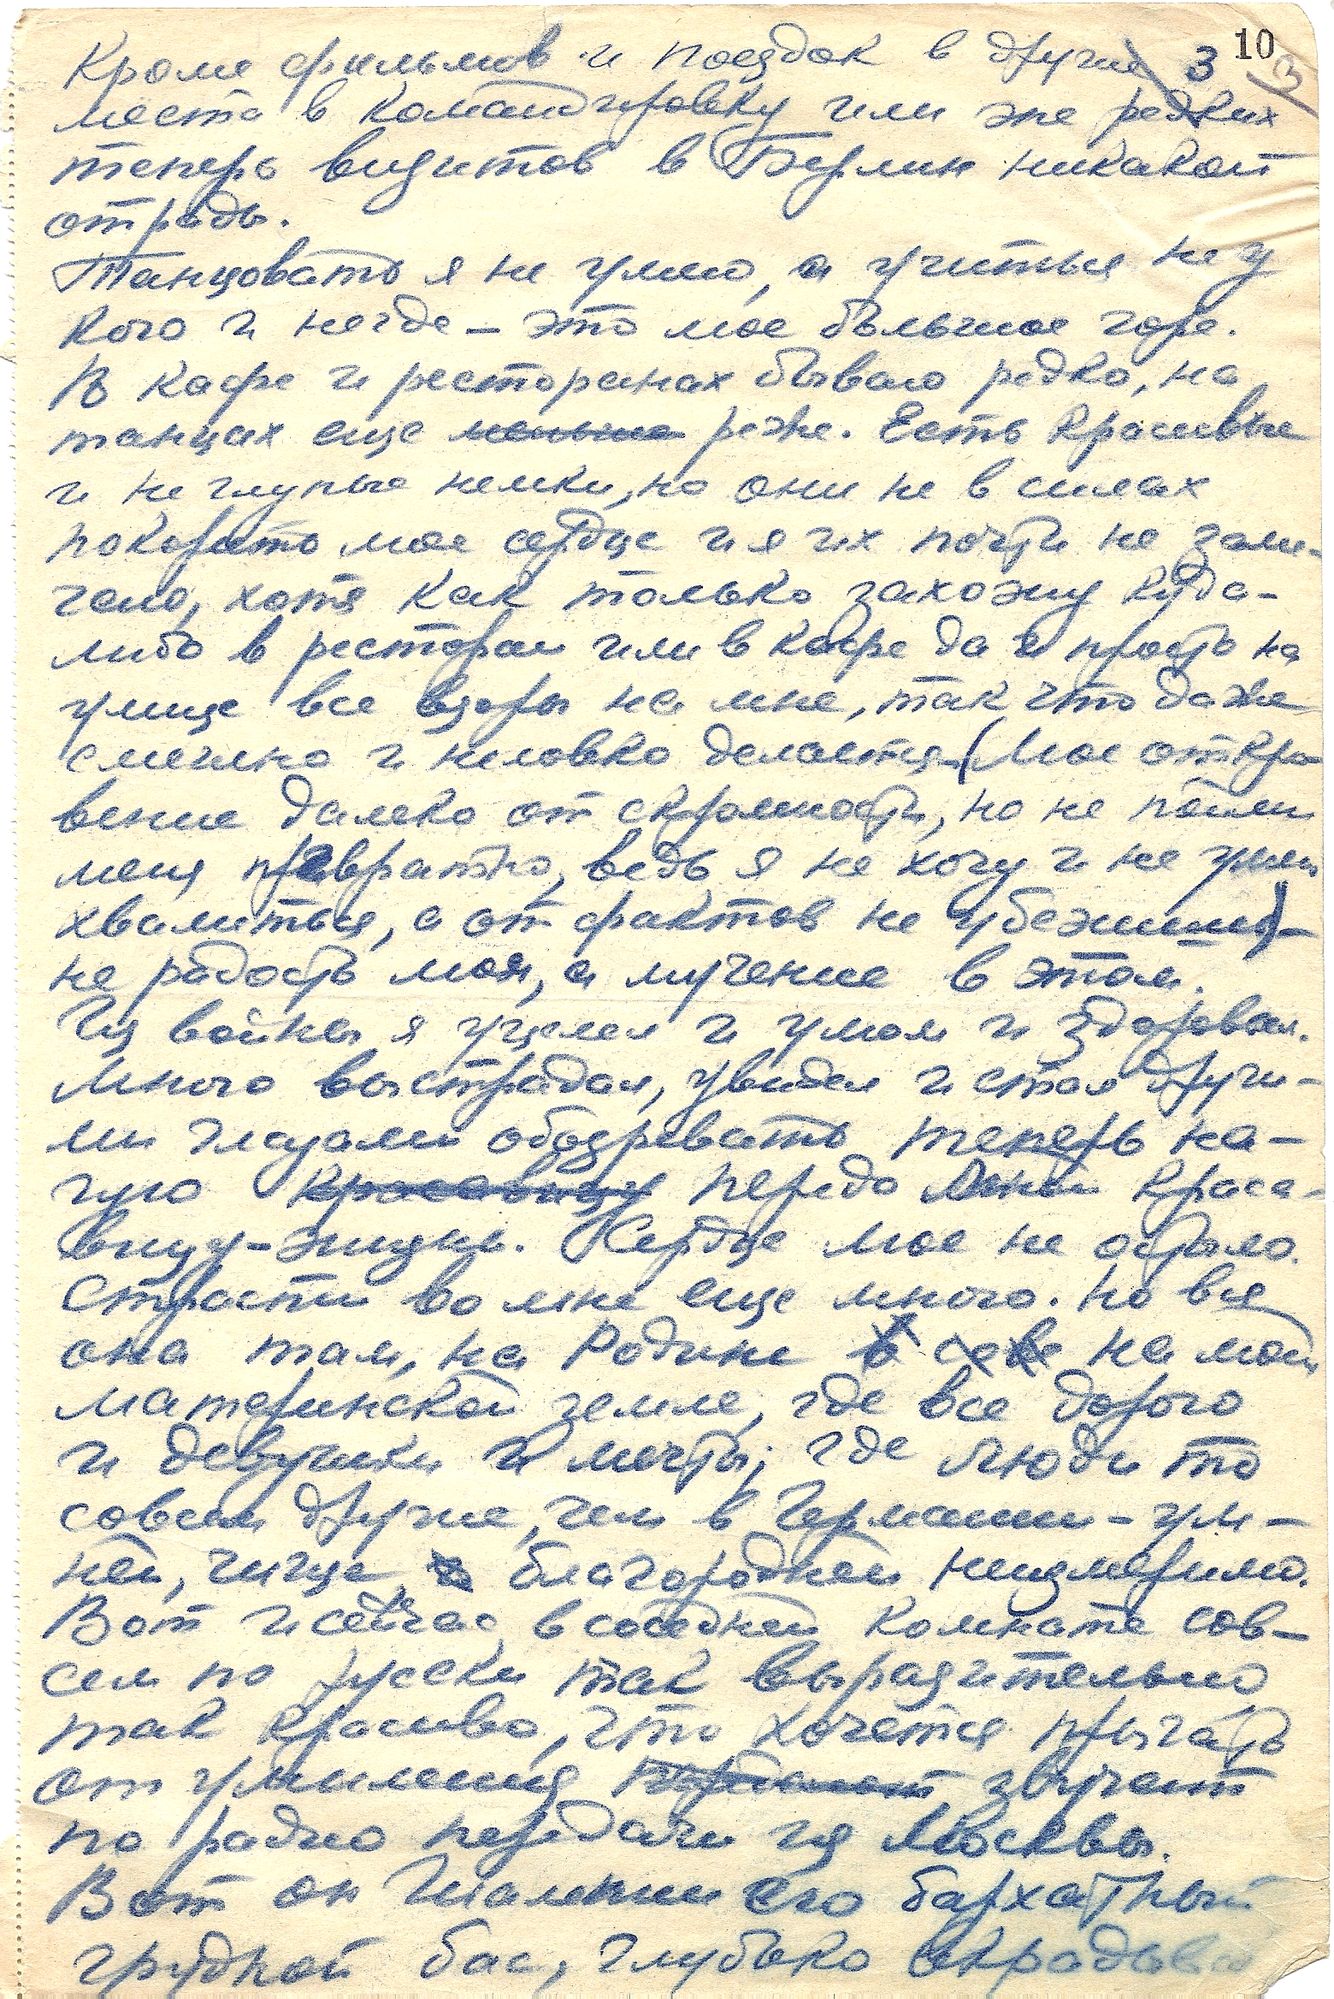 10
3
3
Кроме фильмов и поездок в другие
места в командировку или же редких
теперь визитов в Берлин никакой
отрады.
Танцовать я не умею, а учиться не у
кого и негде – это мое большое горе.
В кафе и ресторанах бываю редко, на
танцах еще меньше реже. Есть красивые
и не глупые немки, но они не в силах
покорить мое сердце и я их почти не заме-
чаю, хотя как только захожу куда-
либо в ресторан или в кафе да и просто на
улице все взоры на мне, так что даже
смешно и неловко делается (Мое откро-
вение далеко от скромности, но не пойми
меня превратно, ведь я не хочу и не умею
хвалиться, а от фактов не убежишь) –
не радость моя, а мучение в этом.
Из войны я уцелел и умом и здоровьем.
Много выстрадал, увидел и стал други-
ми глазами обозревать теперь на-
гую красавицу передо мной краса-
вицу-жизнь. Сердце мое не остыло.
Страсти во мне еще много. Но вся
она там, на Родине в себе на моей
материнской земле, где все дорого
и девушки и мечты; где люди то
совсем другие, чем в Германии – ум-
ней, чище, благородней неизмеримо.
Вот и сейчас, в соседней комнате сов-
сем по русски так выразительно
так красиво, что хочется прыгать
от умиления звучат
по радио передачи из Москвы.
Вот он Шаляпин его бархатный
грудной бас, глубоко